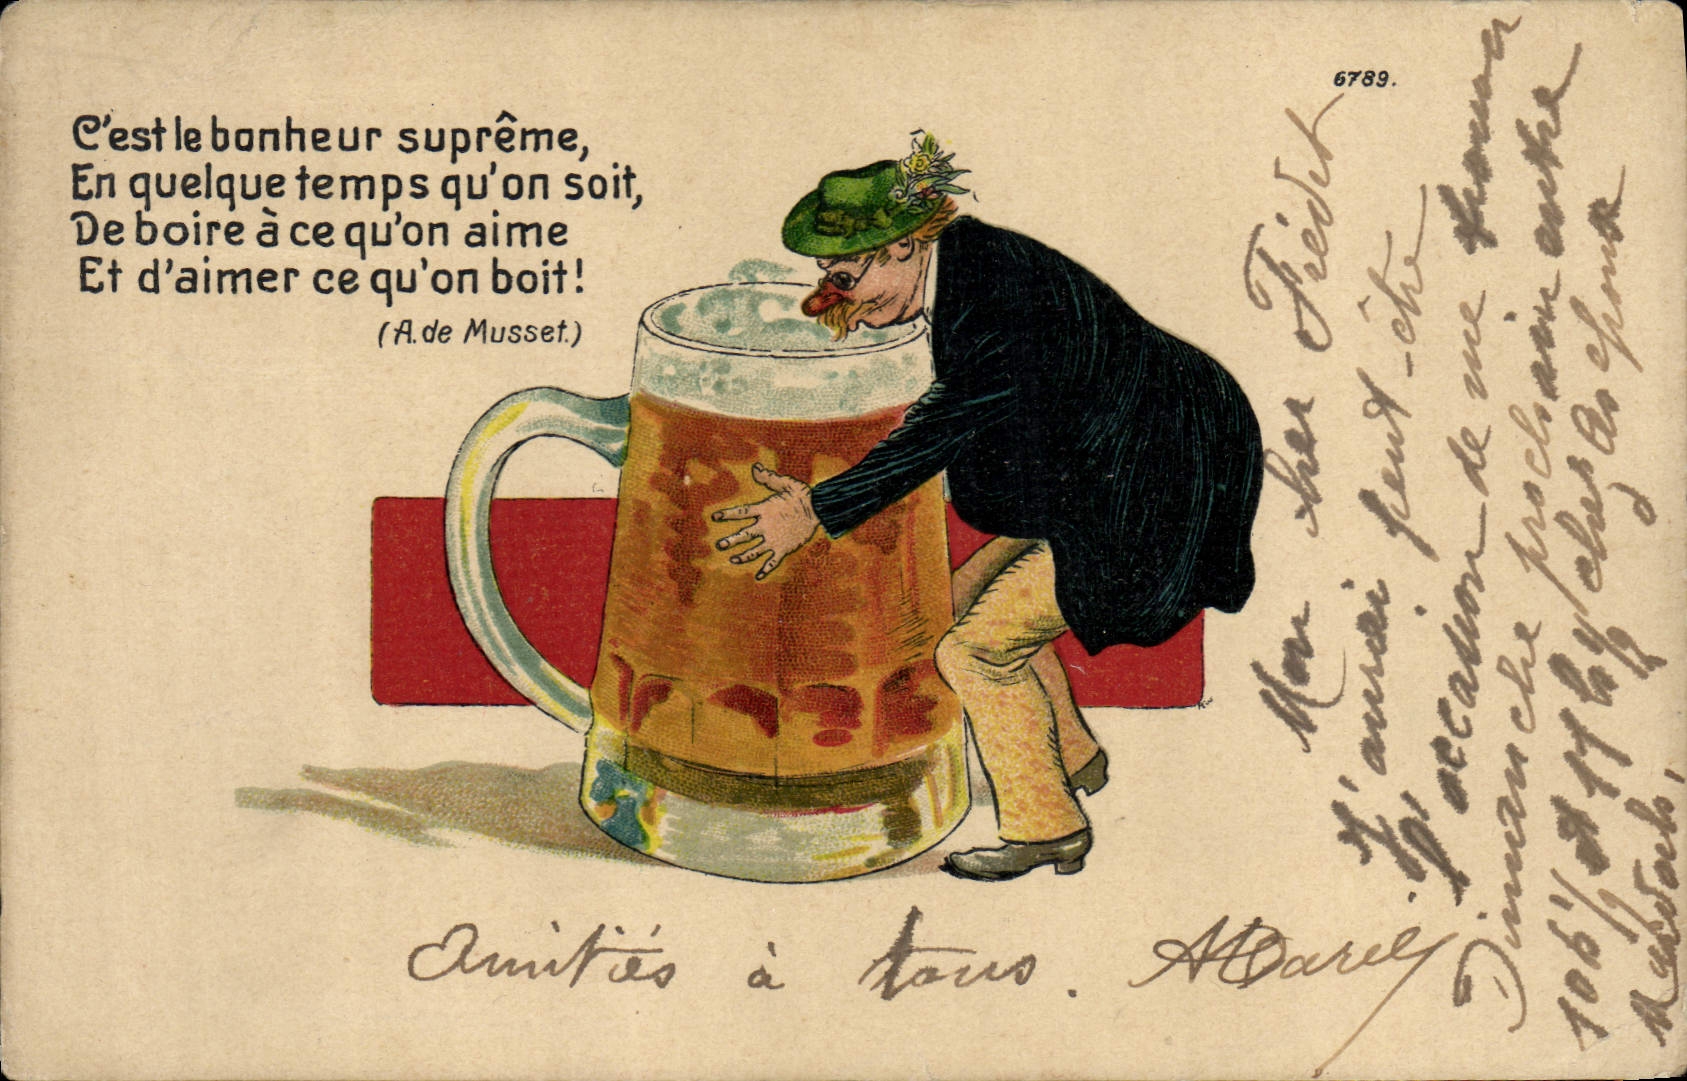 C'est le bonheur suprême,
En quelque temps qu'on soit,
De boire à ce qu'on aime
Et d'aimer ce qu'on boit!
(A. de Musset.)
6789.
Mon cher Frédet
J'aurai peut-être
l'occasion de me trouver
Dimanche prochain entre
10h½ et 11h¼ chez les époux
Amitiés à tous.